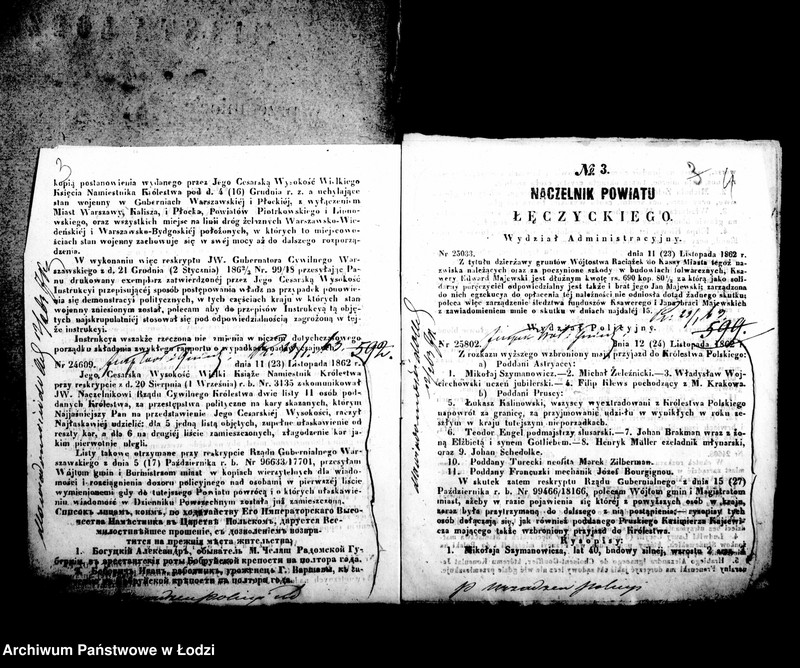 3
kopią postanowienia wydanego przez Jego Cesarską Wysokość Wielkiego
Księcia Namiestnika Królestwa pod d. 4 (16) Grudnia r. z. a uchylające
stan wojenny w Guberniach Warszawskiej i Płockiéj, z wyłączeniem
Miast Warszawy, Kalisza, i Płocka, Powiatów Piotrkowskiego i Lipno-
wskiego, oraz wszystkich miejsc na linii dróg żelaznych Warszawsko-Wie-
deńskiej i Warszawsko-Bydgoskiej położonych, w których to miejscowo-
ściach stan wojenny zachowuje się w swéj mocy aż do dalszego rozporzą-
dzenia.
W wykonaniu więc reskryptu JW. Gubernatora Cywilnego War-
szawskiego z d. 21 Grudnia (2 Stycznia) 186⅔ Nr. 99/48 przesyłając Pa-
nu drukowany exemplarz zatwierdzonej przez Jego Cesarską Wysokość
Instrukcyi przepisującej sposób postępowania władz na przypadek ponowie-
nia się demonstracyi politycznych, w tych częściach kraju w których stan
wojenny zniesionym został, polecam aby do przepisów Instrukcyą tą obję-
tych najskrupulatniej stosował się pod odpowiedzialnością zagrożoną w tej-
że instrukcyi.
Instrukcya wszakże rzeczona nie zmienia w niczem dotychczasowego
porządku składania zwykłego raportu o wypadkach
592.
Nr 24609. dnia 11 (23) Listopada 1862 r.
Jego Cesarska Wysokość Wielki Książe Namiestnik Królestwa
przy reskrypcie z d. 20 Sierpnia (1 Września) r. b. Nr. 3135 zakomunikował
JW. Naczelnikowi Rządu Cywilnego Królestwa dwie listy 11 osób pod-
danych Królestwa, za przestępstwa polityczne na kary skazanych, którym
Najjaśniejszy Pan na przedstawienie Jego Cesarskiej Wysokości, raczył
Najłaskawiej udzielić: dla 5 jedną listą objętych, zupełne ułaskawienie od
reszty kar, a dla 6 na drugiéj liście zamieszczonych, złagodzenie kar ja-
kim pierwotnie ulegli.
Listy takowe otrzymane przy reskrypcie Rządu Gubernialnego War-
szawskiego z dnia 5 (17) Października r. b. Nr 96633/17701, przesyłam
Wójtom gmin i Burmistrzom miast w kopiach wierzytelnych dla wiado-
mości i rozciągnienia dozoru policyjnego nad osobami w pierwszéj liście
wymienionemi gdy do tutejszego Powiatu powrócą i o których ułaskawie-
niu wiadomość w Dzienniku Powszechnym została już zamieszczoną.
Списокъ лицамъ, коимъ, по ходатайству Его Императорскаго Высо-
чества Намѣстника въ Царствѣ Польскомъ, даруется Все-
милостивѣйшее прощеніе, съ дозволеніемъ возвра-
титься на прежнія мѣста жительства.
1. Богуцкій Александръ, обыватель М. Радомской Гу-
берніи, въ арестантскія роты Бобруйской крепости на полтора года.
уроженецъ Г. Варшавы,
Бобруйской крѣпости на полтора года.
3 4
№ 3.
NACZELNIK POWIATU
ŁĘCZYCKIEGO.
Wydział Administracyjny.
Nr 25033. dnia 11 (23) Listopada 1862 r.
Z tytułu dzierżawy gruntów Wójtostwa Raciążek do Kassy Miasta tegoż na-
zwiska należących oraz za poczynione szkody w budowlach folwarcznych, Ksa-
wery Edward Majewski jest dłużnym kwotę rs. 690 kop. 80½ za którą jako soli-
darny poręczyciel odpowiedzialny jest także i brat jego Jan Majewski; zarządzona
do nich egzekucya do opłacenia téj należności nie odniosła dotąd żadnego skutku;
poleca więc zarządzenie śledztwa funduszów Ksawerego i Jana braci Majewskich
z zawiadomieniem mnie o skutku w dniach najdaléj 15.
Wydział Policyjny.
599.
Nr 25802. dnia 12 (24) Listopada 1862 r.
Z rozkazu wyższego wzbroniony mają przyjazd do Królestwa Polskiego:
a) Poddani Astryaccy:
1. Mikołaj Szymanowicz.—2. Michał Żeleźnicki.—3. Władysław Woj-
ciechowski uczeń jubilerski.—4. Filip Kilews pochodzący z M. Krakowa.
b) Poddani Pruscy:
5. Łukasz Kalinowski, wszyscy wyextradowani z Królestwa Polskiego
napowrót za granicę, za przyjmowanie udziału w wynikłych w roku ze-
szłym w kraju tutejszym nieporządkach.
6. Teodor Engel podmajstrzy ślusarski.—7. Johan Brakman wraz z żo-
ną Elżbietą i synem Gotliebem.—8. Henryk Muller czeladnik młynarski,
oraz 9. Johan Schedolke.
10. Poddany Turecki neofita Marek Zilberman.
11. Poddany Francuzki mechanik Józef Bourgignon.
W skutek zatem reskryptu Rządu Gubernialnego z dnia 15 (27)
Października r. b. Nr 99466/18166, polecam Wójtom gmin i Magistratom
miast, ażeby w razie pojawienia się któréj z powyższych osób w kraju,
zaraz była przytrzymaną do dalszego z nią postąpienia;—rysopisy tych
osób dołączają się, jak również poddanego Pruskiego Kazimierza
cza mającego także wzbroniony przyjazd do Królestwa.
Rysopisy.
Mikołaja Szymanowicza, lat 40, budowy silnéj, wzrostu 2
Archiwum Państwowe w Łodzi